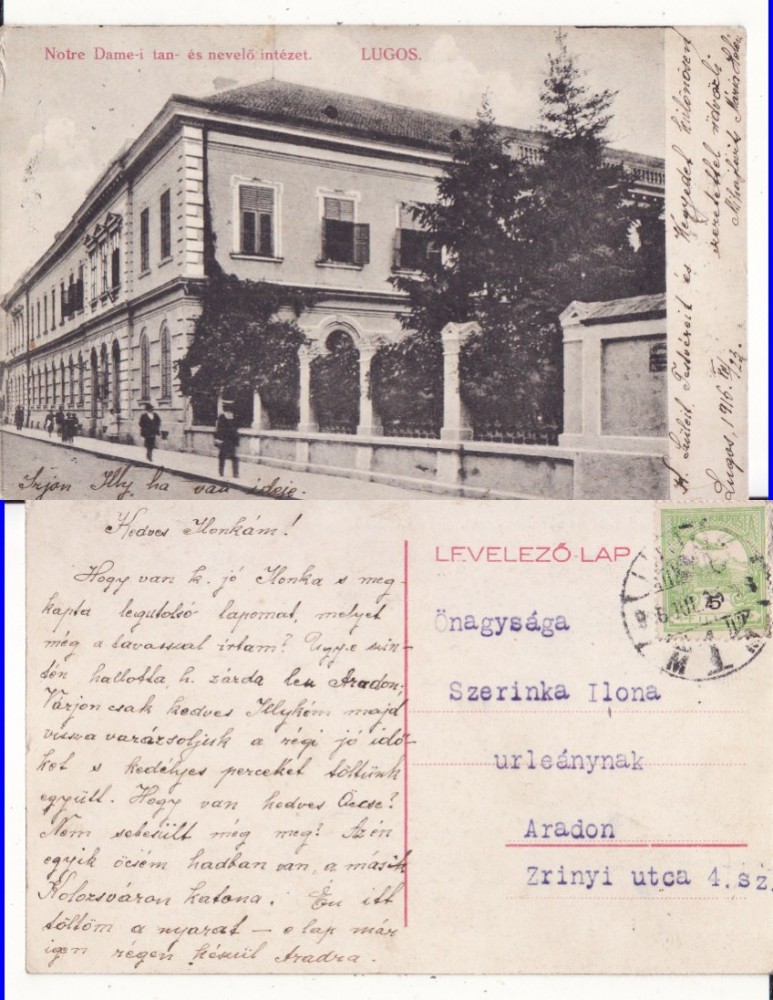 Notre Dame-i tan- és nevelő intézet. LUGOS.
K. Szüleit, Testvéreit és Kegyedet különösen
szeretettel üdvözli
Mihajlovits Mária
Lugos, 1916.
Irjon Illy ha van ideje.
Kedves Ilonkám!
Hogy van k. jó Ilonka s meg-
kapta legutolsó lapomat, melyet
még a tavasszal írtam? Ugye szin-
tén hallotta, h. zárda lesz Aradon;
Várjon csak kedves Illykém majd
vissza varázsoljuk a régi jó idő-
ket s kedélyes perceket töltünk
együtt. Hogy van kedves Öccse?
Nem sebesült még meg? Az én
egyik öcsém hadban van, a másik
Kolozsváron katona. Én itt
töltöm a nyarat — e lap már
igen régen készül Aradra.
LEVELEZŐ-LAP
Önagysága
Szerinka Ilona
urleánynak
Aradon
Zrinyi utca 4.sz.
5